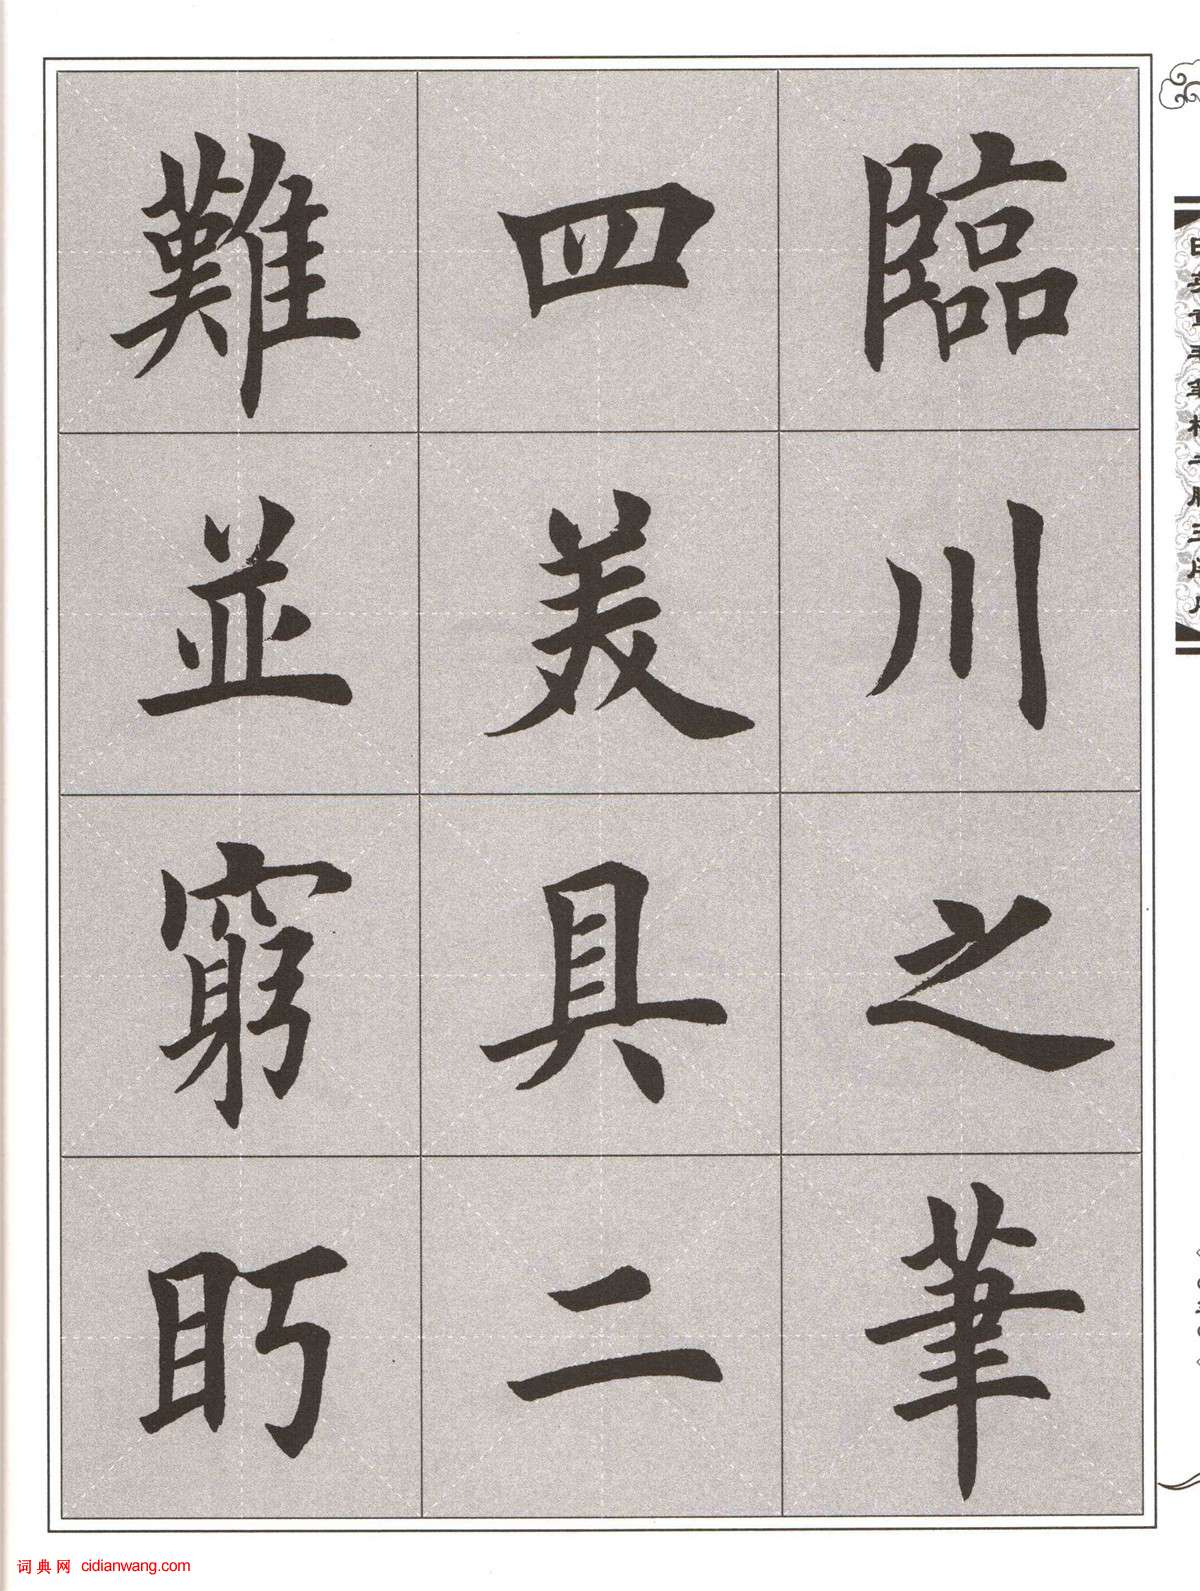 臨川之筆
四美具二
難並窮眄
词典网 cidianwang.com